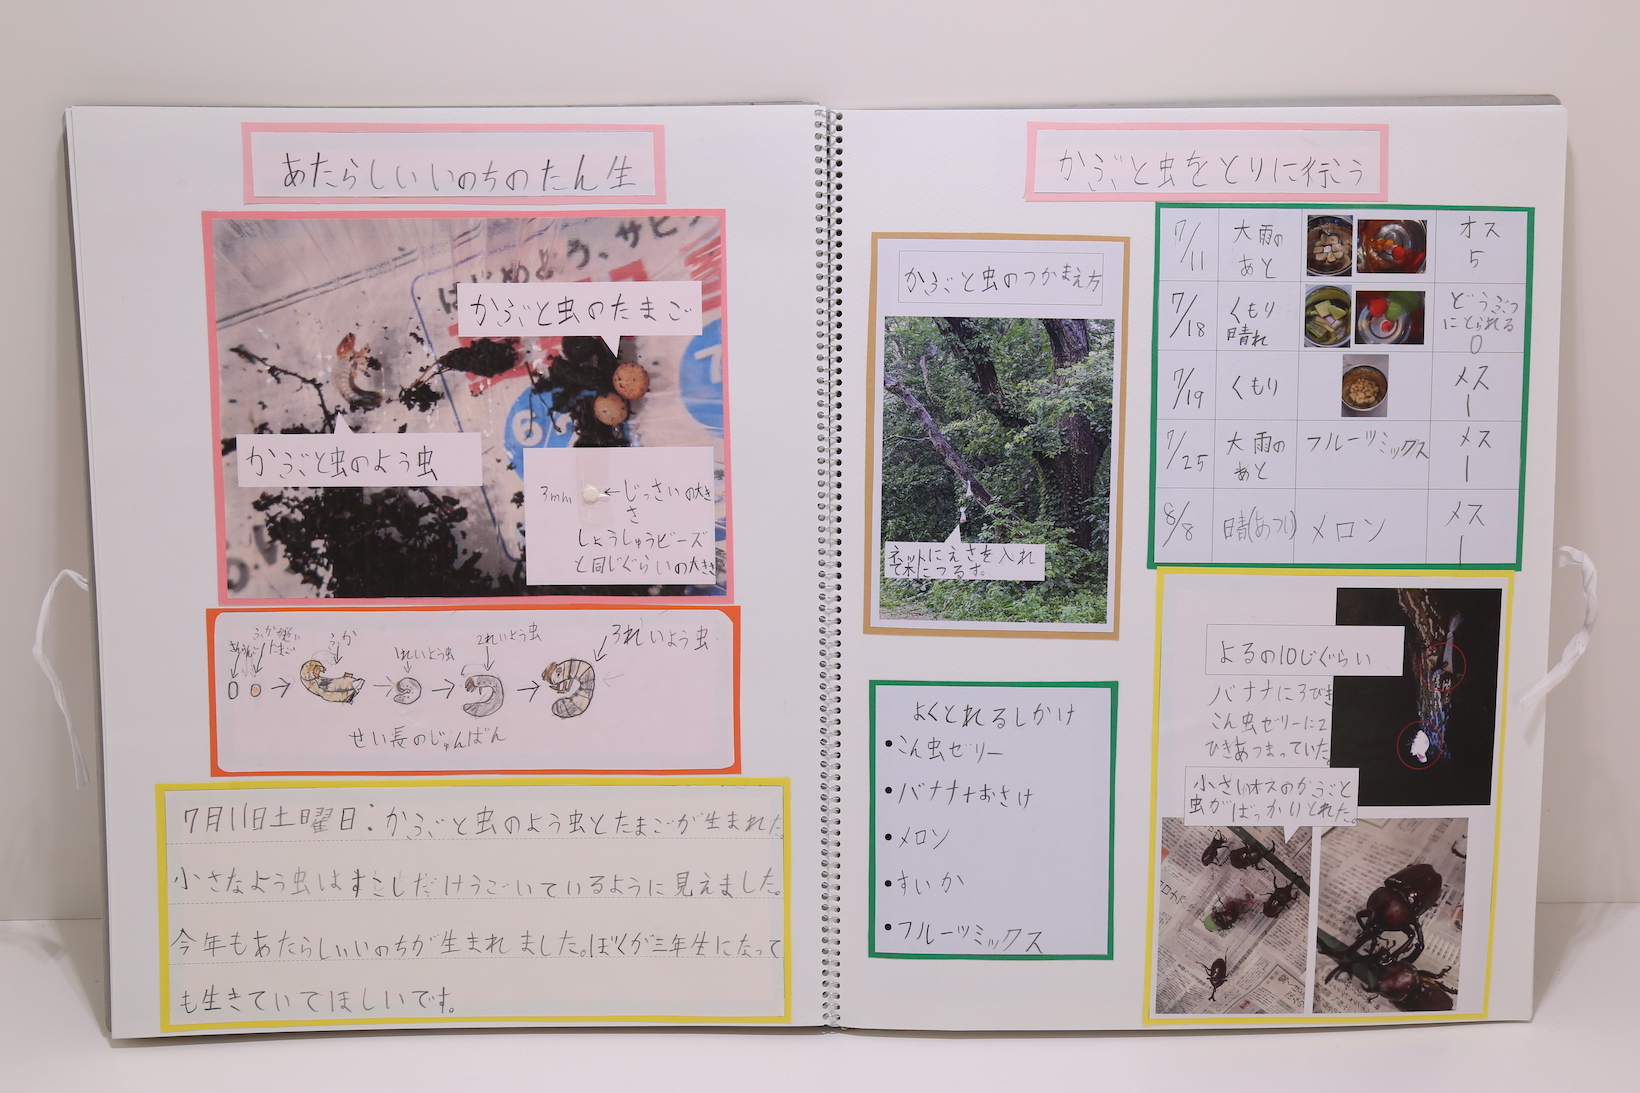 あたらしいいのちのたん生
はじめよう、サビ
かぶと虫のたまご
かぶと虫のよう虫
3mm ←じっさいの大き
さ
しょうしゅうビーズ
と同じぐらいの大きさ
ふか
1れいよう虫
2れいよう虫
3れいよう虫
せい長のじゅんばん
7月11日土曜日：かぶと虫のよう虫とたまごが生まれた。
小さなよう虫はすこしだけうごいているように見えました。
今年もあたらしいいのちが生まれました。ぼくが三年生になって
も生きていてほしいです。
かぶと虫をとりに行う
かぶと虫のつかまえ方
ネットにえさを入れ
て木につるす。
よくとれるしかけ
•こん虫ゼリー
•バナナ+おさけ
•メロン
•すいか
•フルーツミックス
7/11 大雨の オス
あと 5
7/18 くもり どうぶつ
晴れ にとられる
0
7/19 くもり メス
1
7/25 大雨の フルーツミックス メス
あと 1
8/8 晴(あつい) メロン メス
1
よるの10じぐらい
バナナに3びき
こん虫ゼリーに2
ひきあつまっていた。
小さいオスのかぶと
虫がばっかりとれた。